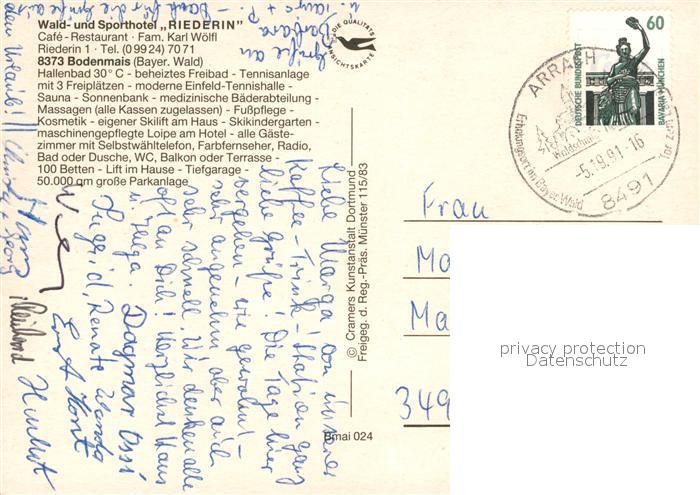 Wald- und Sporthotel „RIEDERIN"
Café - Restaurant · Fam. Karl Wölfl
Riederin 1 · Tel. (0 99 24) 70 71
8373 Bodenmais (Bayer. Wald)
Hallenbad 30° C - beheiztes Freibad - Tennisanlage
mit 3 Freiplätzen - moderne Einfeld-Tennishalle -
Sauna - Sonnenbank - medizinische Bäderabteilung -
Massagen (alle Kassen zugelassen) - Fußpflege -
Kosmetik - eigener Skilift am Haus - Skikindergarten -
maschinengepflegte Loipe am Hotel - alle Gäste-
zimmer mit Selbstwähltelefon, Farbfernseher, Radio,
Bad oder Dusche, WC, Balkon oder Terrasse -
100 Betten - Lift im Hause - Tiefgarage -
50.000 qm große Parkanlage
DIE QUALITÄTS
ANSICHTSKARTE
© Cramers Kunstanstalt Dortmund
Freigeg. d. Reg.-Präs. Münster 115/83
Bmai 024
Liebe Marga von unserer
Kaffee-Trink-Station ganz
liebe Grüße! Die Tage hier
vergehen - wie gewohnt!
sehr angenehm aber auch
sehr schnell. Wir denken alle
oft an Dich! Herzlichst Hans
u. Helga. Dagmar Ossi
Ingrid, Renate
Ernst Horst
Grüße an
Barbara
dem Urlaub!
60
DEUTSCHE BUNDESPOST
BAVARIA MÜNCHEN
ARRACH
Erholungsort im Bayer. Wald
-5.19.91-16
8491
Frau
Ma
Ma
349
privacy protection
Datenschutz